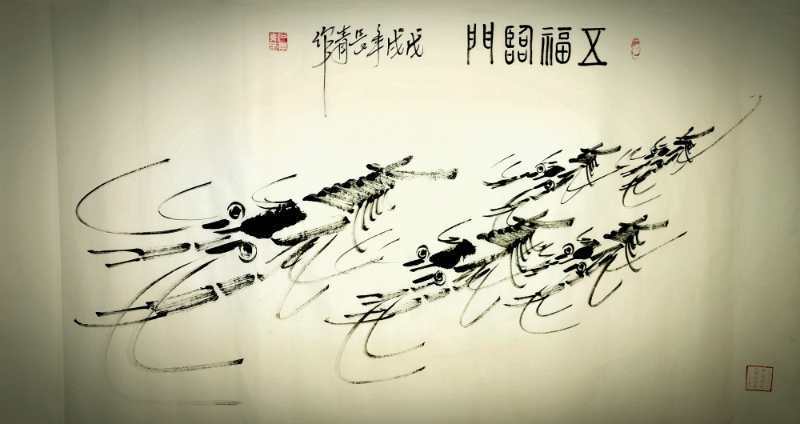 五福臨門
戊戌年長青作